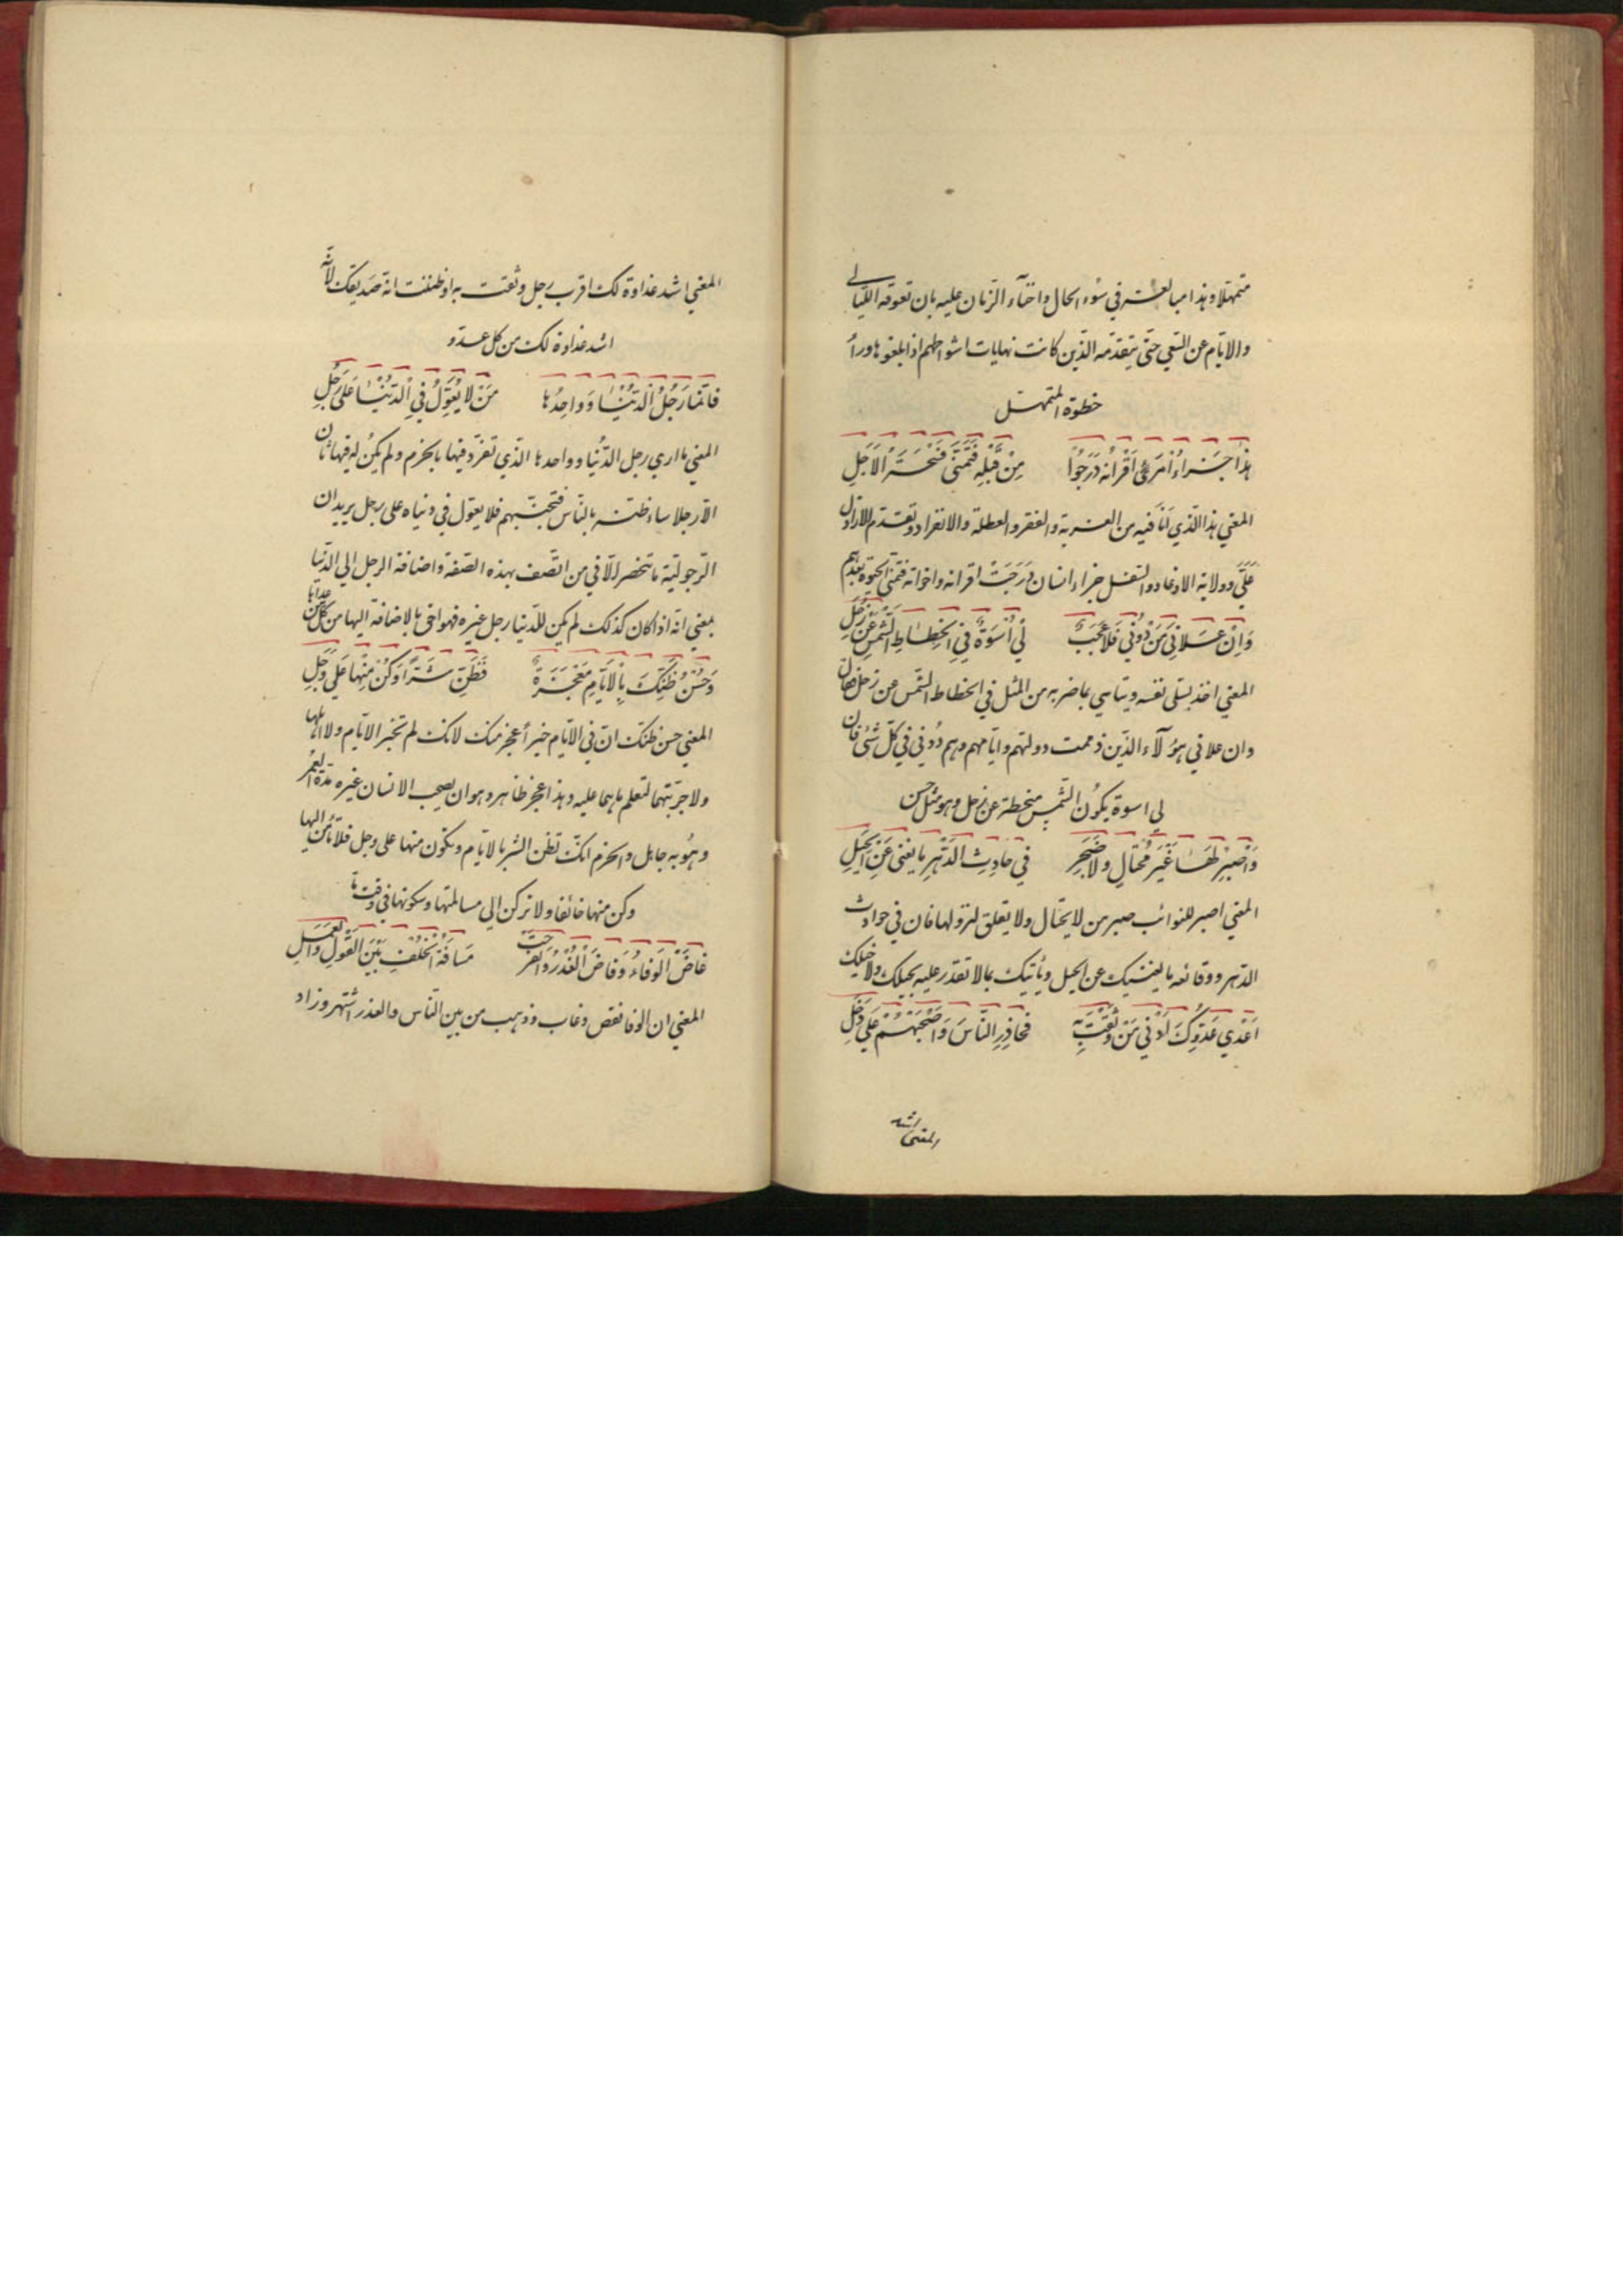 متمهلا وهذا مبالغة في سوء الحال واخناء الزمان عليه بان تعوقه الليالي
والايام عن السعي حتى يتقدمه الذين كانت نهايات اشواطهم اذا بلغوها وراء
خطوة المتمهل
هٰذا جَزاءُ امرئٍ اَقْرانُه دَرَجُوا مِنْ قَبْلِهِ فَتَمَنّى فُسْحَةَ الاَجَلِ
المعني هذا الذي اَنَا فيه من الغربة والفقر والعطلة والانفراد وتقدم الاراذل
عَلَيَّ وولاية الاوغاد والسفل جزاء انسان دَرَجَتْ اقرانه واخوانه فتمنى الحيوة بعدهم
وَاِنْ عَلانِي مَنْ دُونِي فَلا عَجَبٌ لِي اُسْوَةٌ فِي انْحِطاطِ الشَّمْسِ عَنْ زُحَلِ
المعني اخذ يسلي نفسه ويتاسي بما ضربه من المثل في انحطاط الشمس عن زحل فقال
وان علاني هؤلآء الذين ذممت دولتهم وايامهم وهم دُوني في كل شئ فان
لي اسوة بكون الشمس منحطة عن زحل وهو مثل حسن
وَاصْبِرْ لَهَا غَيْرَ مُحْتالٍ ولا ضَجِرٍ في حادِثِ الدَّهْرِ ما يغني عَنِ الحِيَلِ
المعني اصبر للنوائب صبر من لا يحتال ولا يقلق لنزولها فان في حوادث
الدهر ووقائعه ما يغنيك عن الحيل ويأتيك بما لا تقدر عليه بحيلك ولا خيلك
اَعْدي عَدُوِّكَ اَدْني مَنْ وَثِقْتَ بِه فَحاذِرِ النّاسَ وَاصْحَبْهُمْ عَلي دَخَلِ
المعني اشد
المعني اشد عداوة لك اقرب رجل وثقت به او ظننت انه صديقك لانه
اشد عداوة لك من كل عدو
فاِنّما رَجُلُ الدُّنْيا وَواحِدُها مَنْ لا يُعَوِّلُ فِي الدُّنْيا عَلي رَجُلِ
المعني ما اري رجل الدُنيا وواحدها الذي تفرد فيها بالحزم ولم يكن له فيها ثان
الا رجلا ساء ظنه بالناس فتجنبهم فلا يعول في دنياه على رجل يريد ان
الرجولية ما تنحصر الا في من اتصف بهذه الصفة واضافة الرجل الي الدنيا
بمعني انه اذا كان كذلك لم يكن للدنيا رجل غيره فهو احق بالاضافة اليها من كل من عداه
وَحُسْنُ ظَنِّكَ بِالاَيّامِ مَعْجَزَةٌ فَظُنَّ شَرًّا وَكُنْ مِنْها عَلي وَجَلِ
المعني حسن ظنك ان في الايام خيرا عجز منك لانك لم تخبر الايام ولا اهلها
ولا جربتهما لتعلم ما هما عليه وهذا عجز ظاهر وهو ان يصحب الانسان غيره مدة العمر
وهُو به جاهل والحزم انك تظن الشر بالايام وتكون منها على وجل فلا تأمن اليها
وكن منها خائفا ولا تركن الي مسالمتها وسكونها في وقت ما
غاضَ الوَفاءُ وَفاضَ الغَدْرُ وَانفَرَجَتْ مَسافَةُ الْخُلْفِ بَيْنَ القَوْلِ وَالْعَمَلِ
المعني ان الوفا نقص وغاب وذهب من بين الناس والغدر اشتهر وزاد